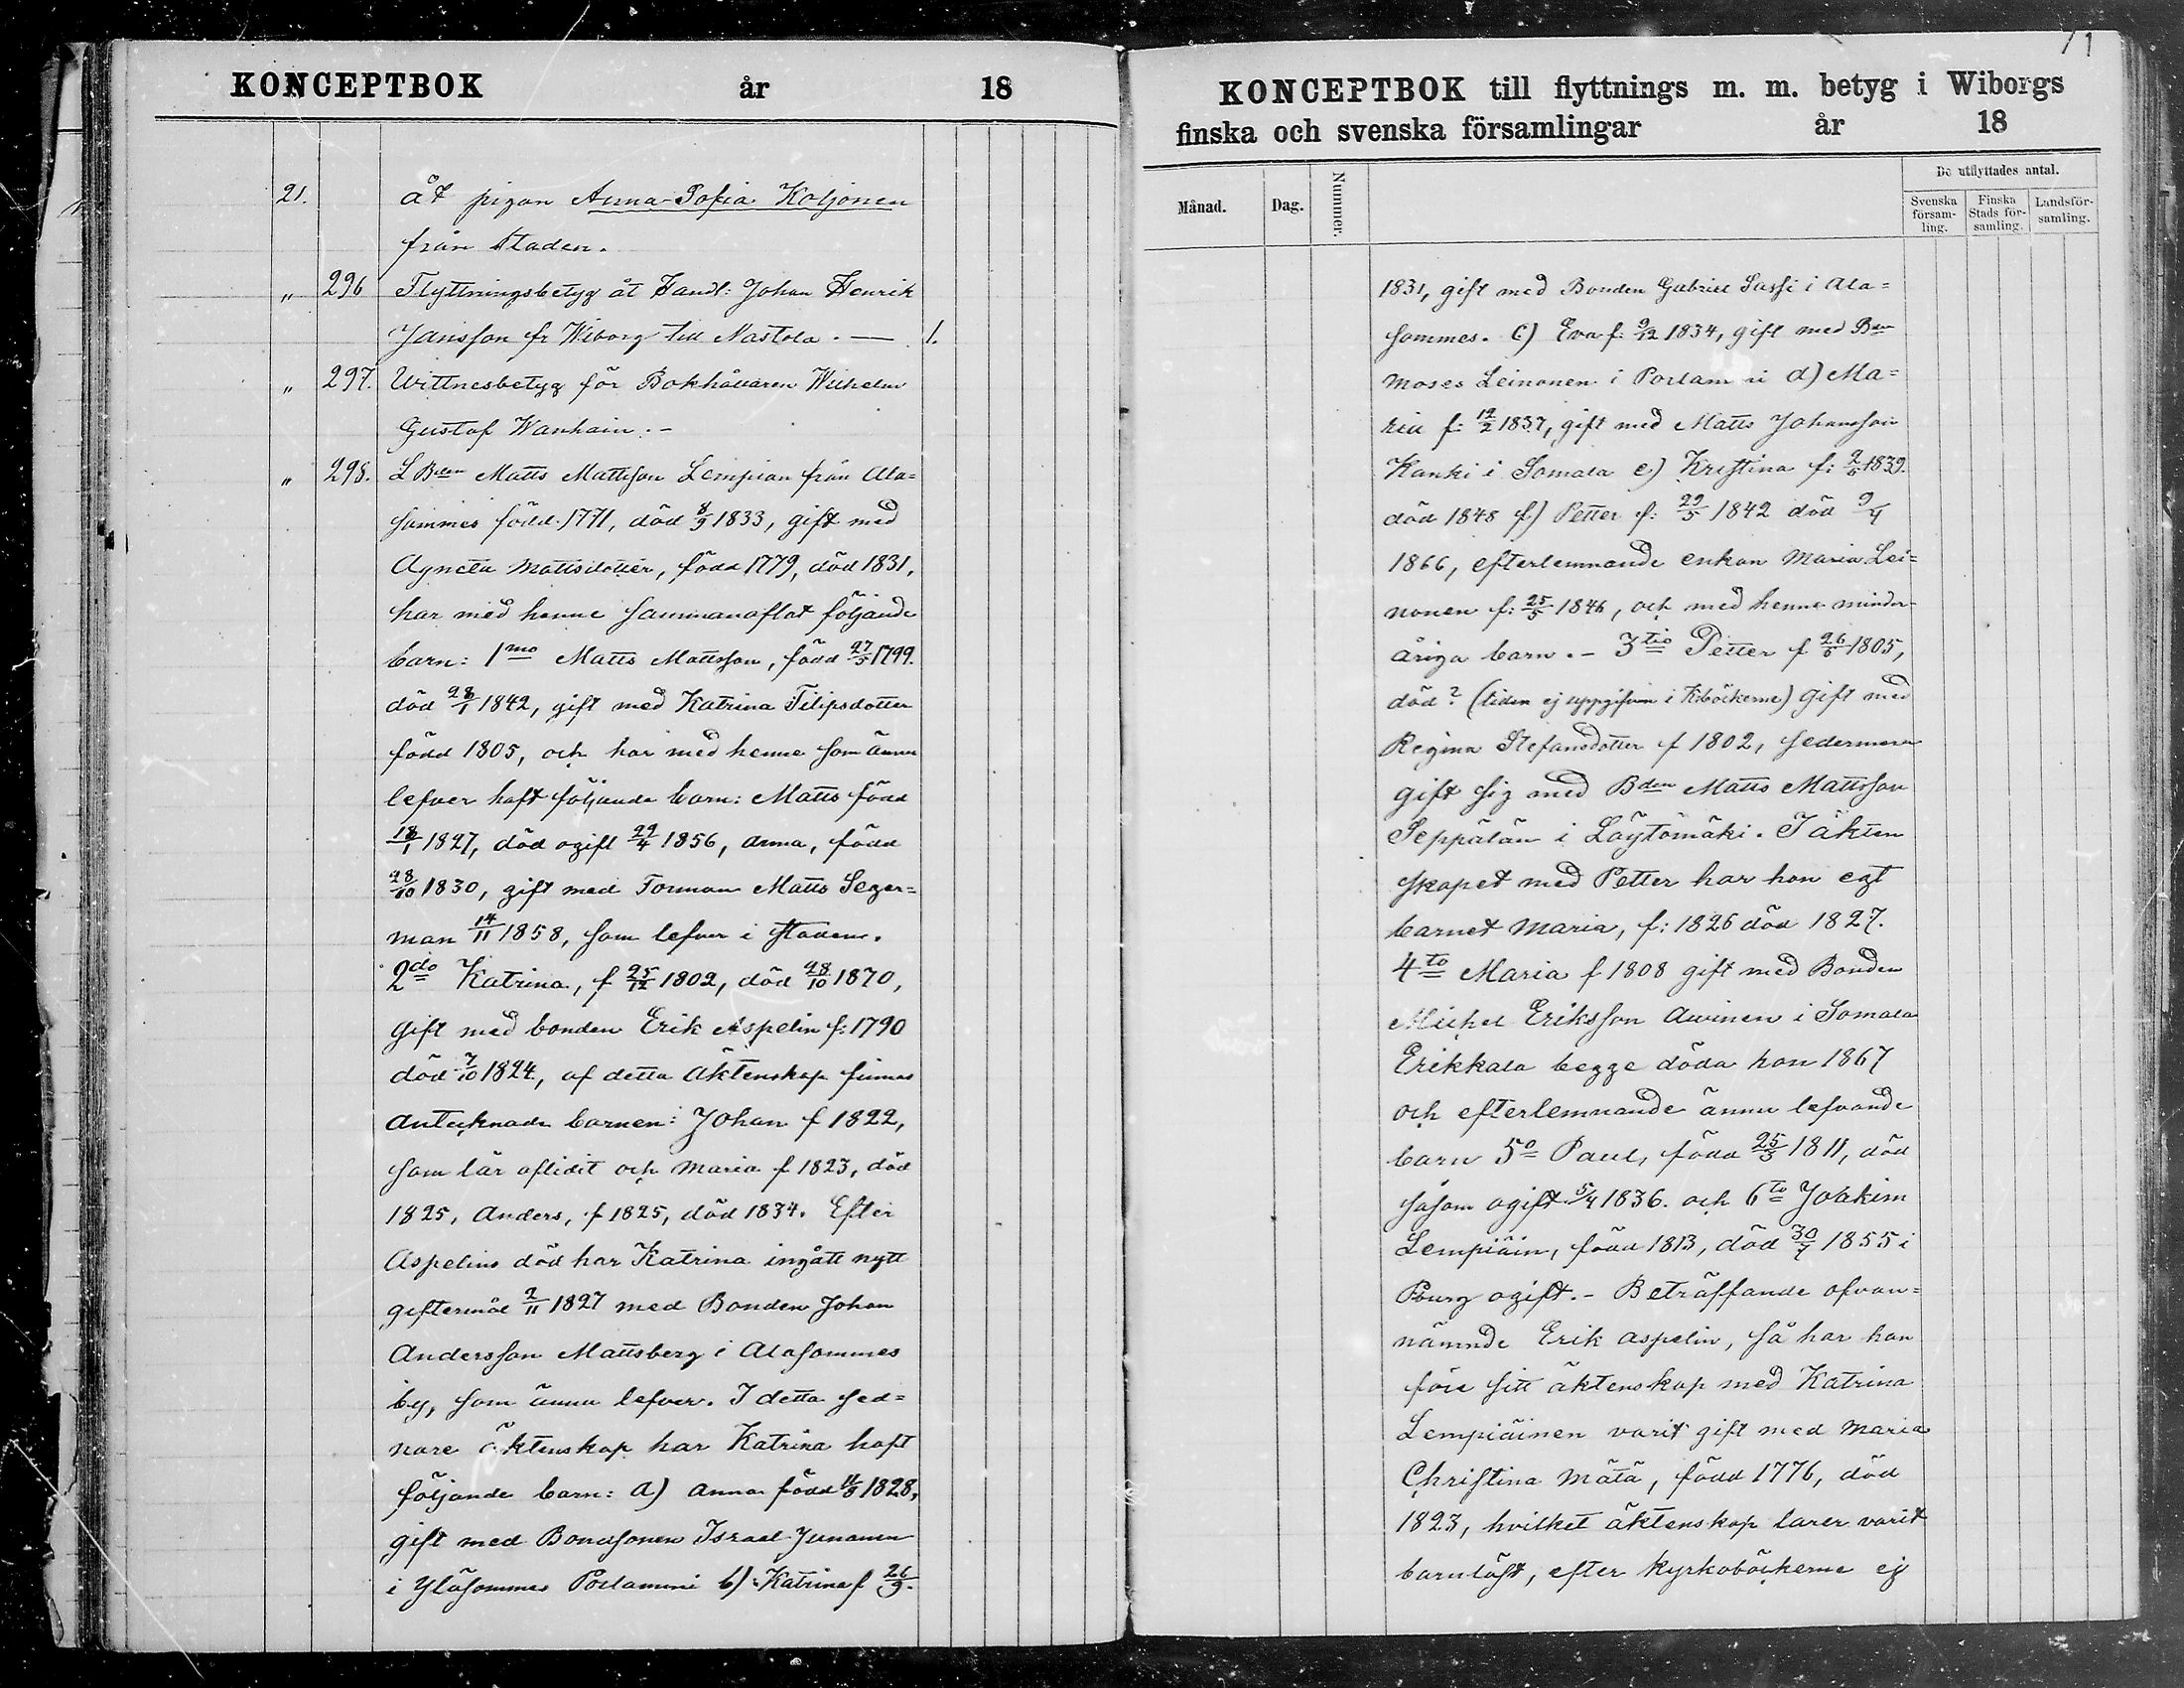 KONCEPTBOK år 18
21. åt pigan Anna Sofia Koljonen
från staden.
„ 296 Flyttningsbetyg åt Handl: Johan Henrik
Jansson fr Wiborg till Nastola. — 1.
„ 297. Wittnesbetyg för Bokhållaren Wilhelm
Gustaf Wanhain. –
„ 298. L Bden Matts Mattsson Lempian från Ala=
sommes född 1771, död 8/9 1833, gift med
Agneta Mattsdotter, född 1779, död 1831,
har med henne sammanaflat följande
barn: 1mo Matts Mattsson, född 27/5 1799.
död 28/1 1842, gift med Katrina Filipsdotter
född 1805, och har med henne som ännu
lefver haft följande barn: Matts född
18/1 1827, död ogift 29/4 1856, Anna, född
28/10 1830, gift med Forman Matts Seger=
man 14/11 1858, som lefver i staden.
2do Katrina, f 25/12 1802, död 28/10 1870,
gift med bonden Erik Aspelin f: 1790
död 7/10 1824, af detta äktenskap finnas
antecknade barnen: Johan f 1822,
som lär aflidit och Maria f 1823, död
1825, Anders, f 1825, död 1834. Efter
Aspelins död har Katrina ingått nytt
giftermål 2/11 1827 med Bonden Johan
Andersson Mattsberg i Alasommes
by, som ännu lefver. I detta sed=
nare äktenskap har Katrina haft
följande barn: a) Anna född 11/8 1828,
gift med Bondsonen Israel Junanen
i Yläsommes Porlammi b) Katrina f 26/9.
71
KONCEPTBOK till flyttnings m. m. betyg i Wiborgs
finska och svenska församlingar år 18
Månad. Dag. Nummer. De utflyttades antal.
Svenska församling. Finska Stads församling. Landsförsamling.
1831, gift med Bonden Gabriel Sassi i Ala=
sommes. c) Eva f: 9/12 1834, gift med Bden
Moses Leinonen i Porlammi d) Ma=
ria f: 12/2 1837, gift med Matts Johansson
Kanki i Somala e) Kristina f: 2/6 1839.
död 1848 f) Petter f: 29/5 1842 död 9/4
1866, efterlemnande enkan Maria Lei=
nonen f: 25/5 1846, och med henne minder-
åriga barn. – 3tio Petter f 26/6 1805,
död? (tiden ej uppgifven i Kböckerne) gift med
Regina Stefansdotter f 1802, sedermera
gift sig med Bden Matts Mattsson
Seppälän i Löytömäki. I äkten
skapet med Petter har hon egt
barnet Maria, f: 1826 död 1827.
4to Maria f 1808 gift med Bonden
Michel Eriksson Auvinen i Somala
Erikkala begge döda hon 1867
och efterlemnande ännu lefvande
barn 5o Paul, född 25/3 1811, död
såsom ogift 5/4 1836. och 6to Joakim
Lempiäin, född 1813, död 30/7 1855 i
Pburg ogift. – Beträffande ofvan=
nämnde Erik Aspelin, så har han
före sitt äktenskap med Katrina
Lempiäinen varit gift med Maria
Christina Mätä, född 1776, död
1823, hvilket äktenskap larer varit
barnlöst, efter kyrkoböckerne ej